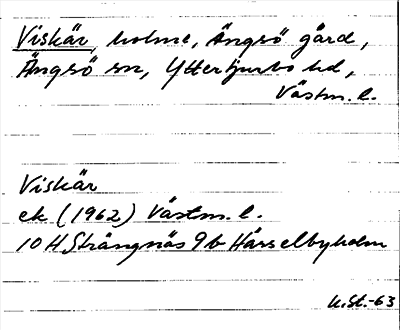 Viskär, holme, Ängsö gård,
Ängsö sn, Yttertjurbo hd,
Västm. l.
Viskär
ek (1962) Västm. l.
10 H Strängnäs 9b Hässelbyholm
K.St.-63